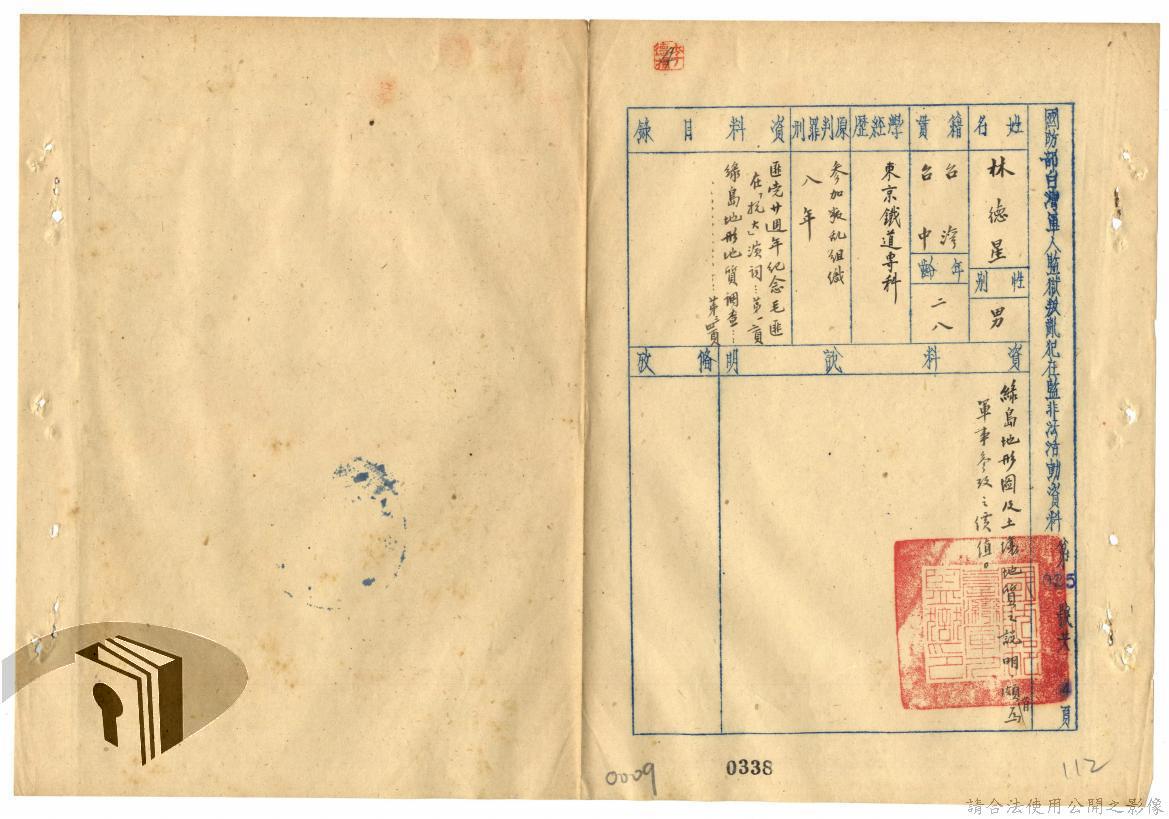 國防部台灣軍人監獄叛亂犯在監非法活動資料 第025號共4頁
姓名
林德星
性別
男
籍貫
台灣
台中
年齡
二八
學經歷
東京鐵道專科
原判罪刑
參加叛乱組織
八年
資料目錄
匪党廿週年纪念毛匪
在「抗大」演词…第一頁
綠島地形地質調查…
………第四頁
資料說明
綠島地形圖及土壤地質之說明、頗具
軍事參攷之價值。
備攷
0009
0338
112
請合法使用公開之影像